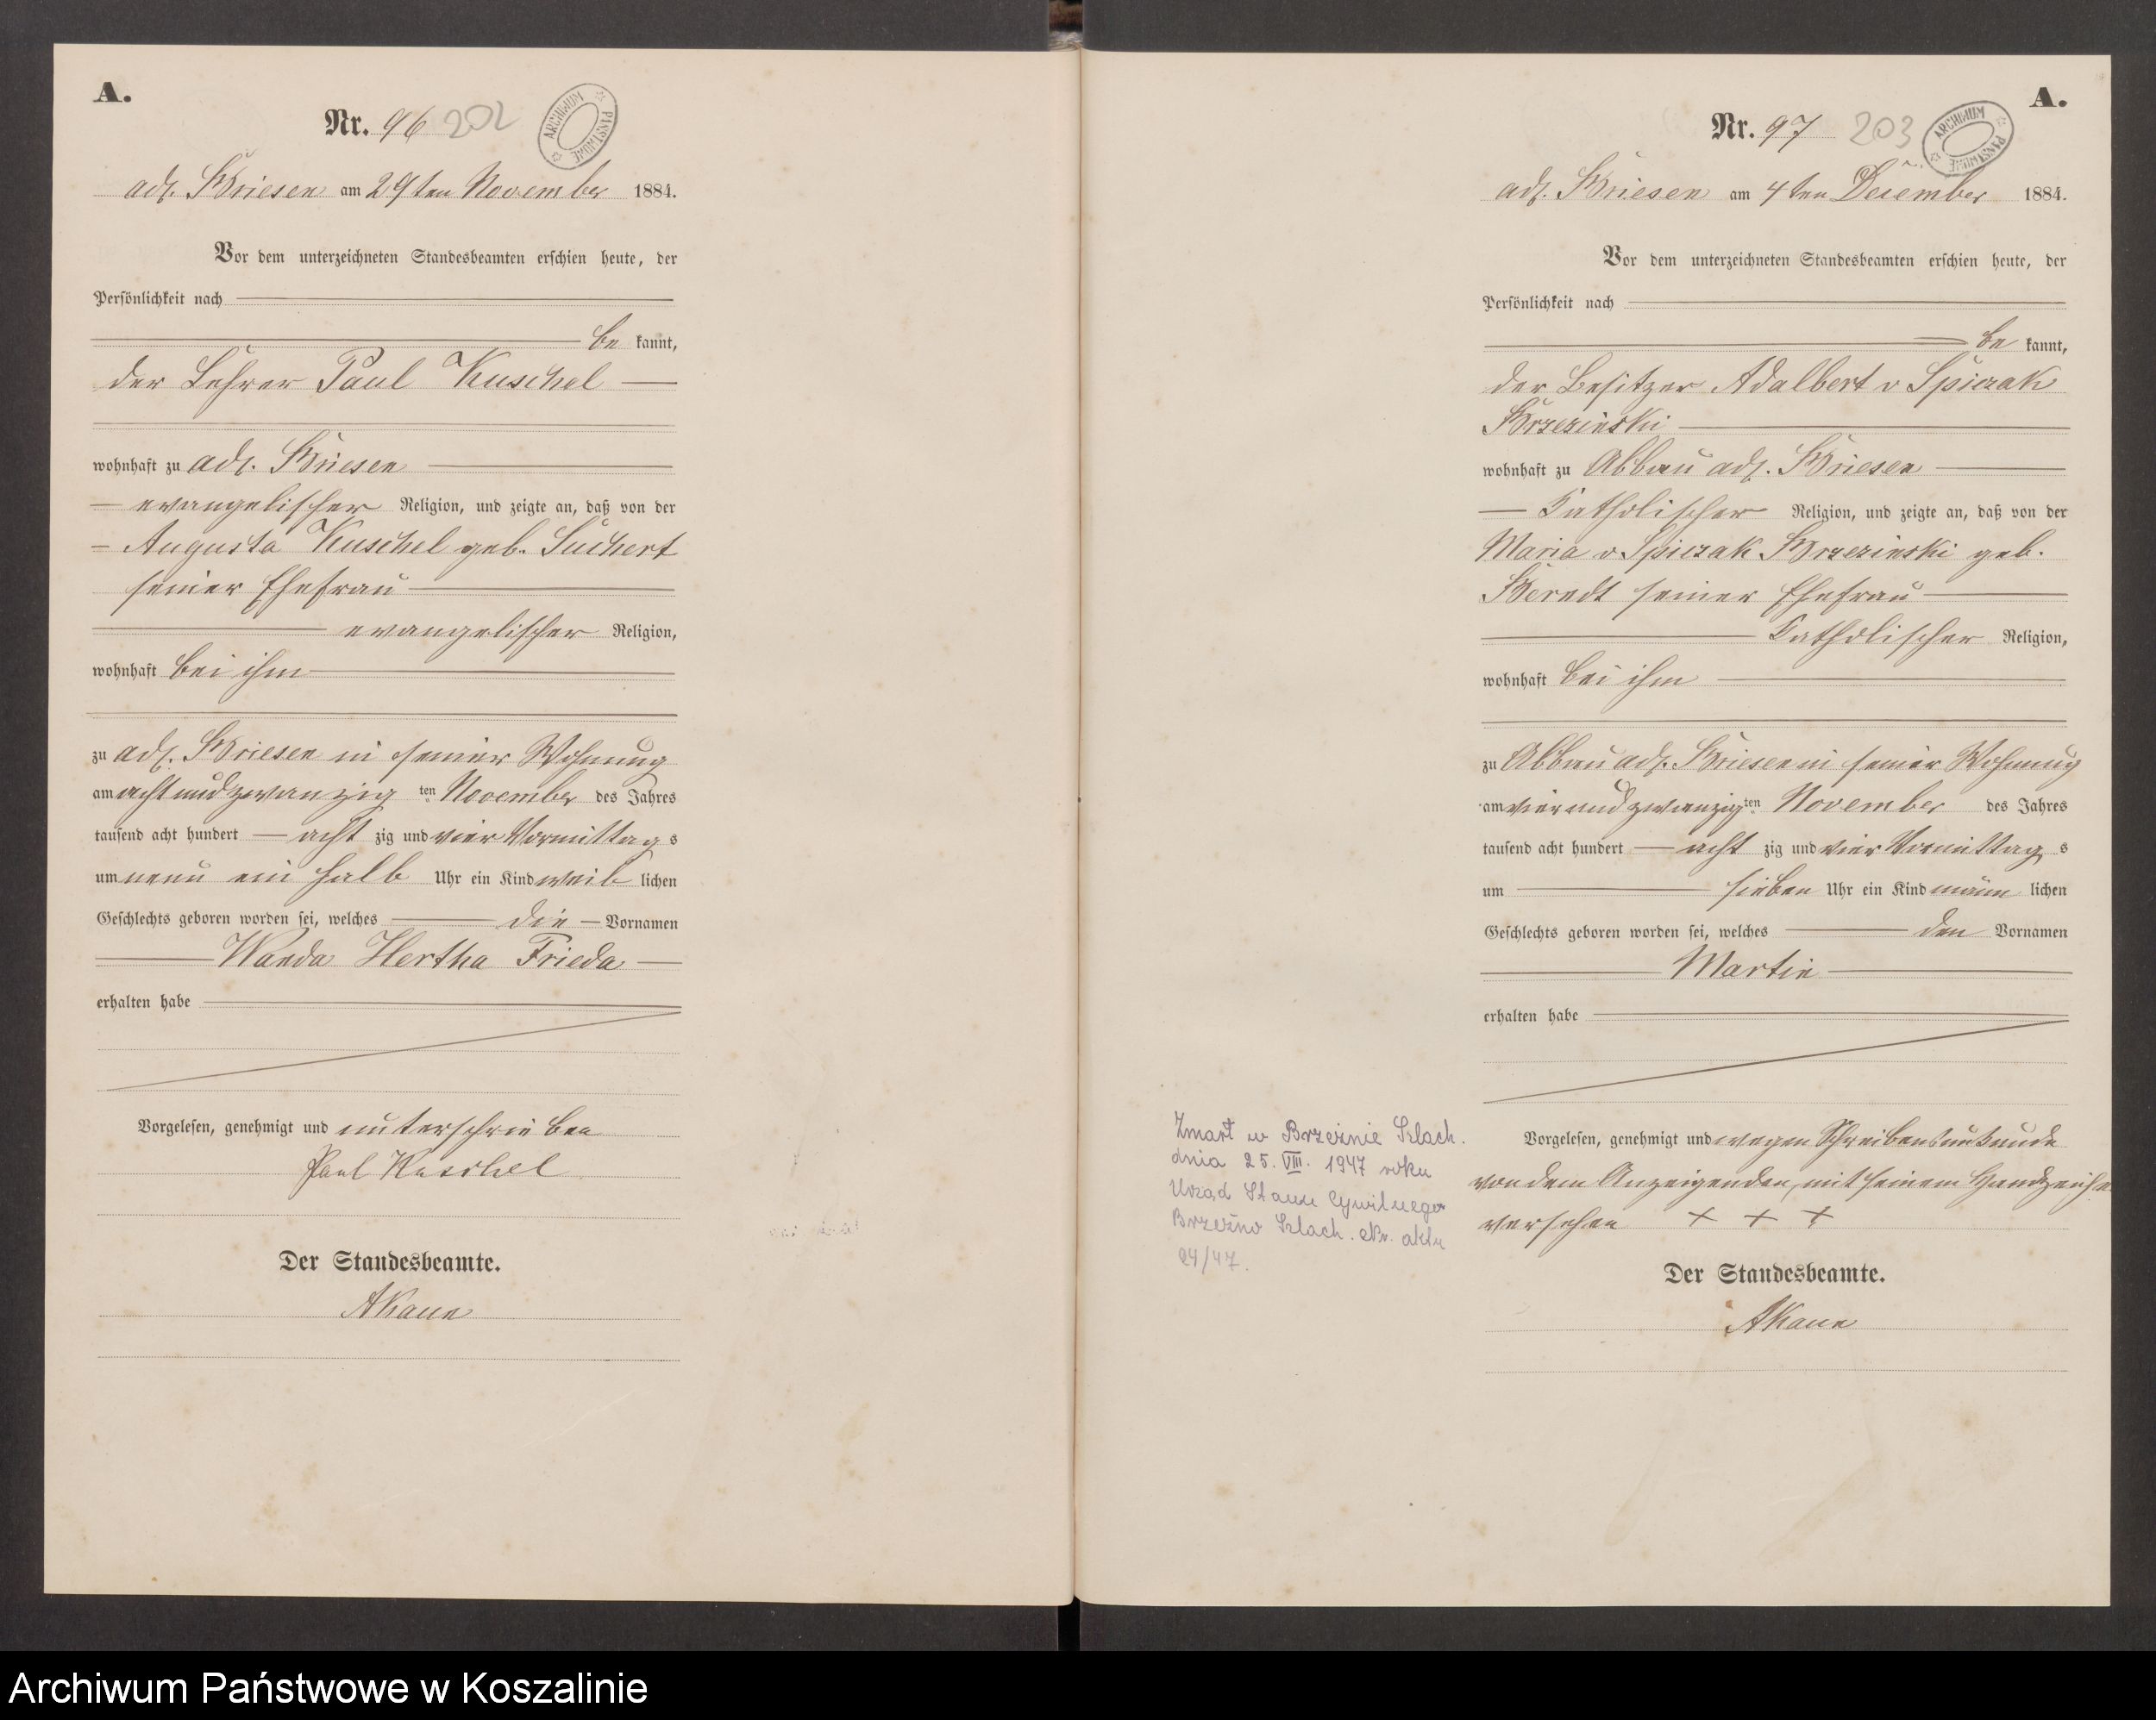 A.
Nr. 96 202
ARCHIWUM PAŃSTWOWE
adl. Briesen am 29ten November 1884.
Vor dem unterzeichneten Standesbeamten erschien heute, der
Persönlichkeit nach
be kannt,
der Lehrer Paul Kuschel
wohnhaft zu adl. Briesen
evangelischer Religion, und zeigte an, daß von der
Augusta Kuschel geb. Suchert
seiner Ehefrau
evangelischer Religion,
wohnhaft bei ihm
zu adl. Briesen in seiner Wohnung
am acht und zwanzig ten November des Jahres
tausend acht hundert acht zig und vier Vormittag s
um neun ein halb Uhr ein Kind weib lichen
Geschlechts geboren worden sei, welches die Vornamen
Wanda Hertha Frieda
erhalten habe
Vorgelesen, genehmigt und unterschrieben
Paul Kuschel
Der Standesbeamte.
A.
Nr. 97 203
ARCHIWUM PAŃSTWOWE
adl. Briesen am 4ten December 1884.
Vor dem unterzeichneten Standesbeamten erschien heute, der
Persönlichkeit nach
be kannt,
der Besitzer Adalbert v Spiczak
Brzezinski
wohnhaft zu Abbau adl. Briesen
katholischer Religion, und zeigte an, daß von der
Maria v. Spiczak Brzezinski geb.
Berndt seiner Ehefrau
katholischer Religion,
wohnhaft bei ihm
zu Abbau adl. Briesen in seiner Wohnung
am vier und zwanzig ten November des Jahres
tausend acht hundert acht zig und vier Vormittag s
um sieben Uhr ein Kind männ lichen
Geschlechts geboren worden sei, welches den Vornamen
Martin
erhalten habe
Vorgelesen, genehmigt und wegen Schreibensunkunde
von dem Anzeigenden, mit seinem Handzeichen
versehen + + +
Der Standesbeamte.
Zmarł w Brzeźnie Szlach.
dnia 25. VIII. 1947 roku
Urząd Stanu Cywilnego
Brzeźno Szlach. Nr. aktu
24/47.
Archiwum Państwowe w Koszalinie